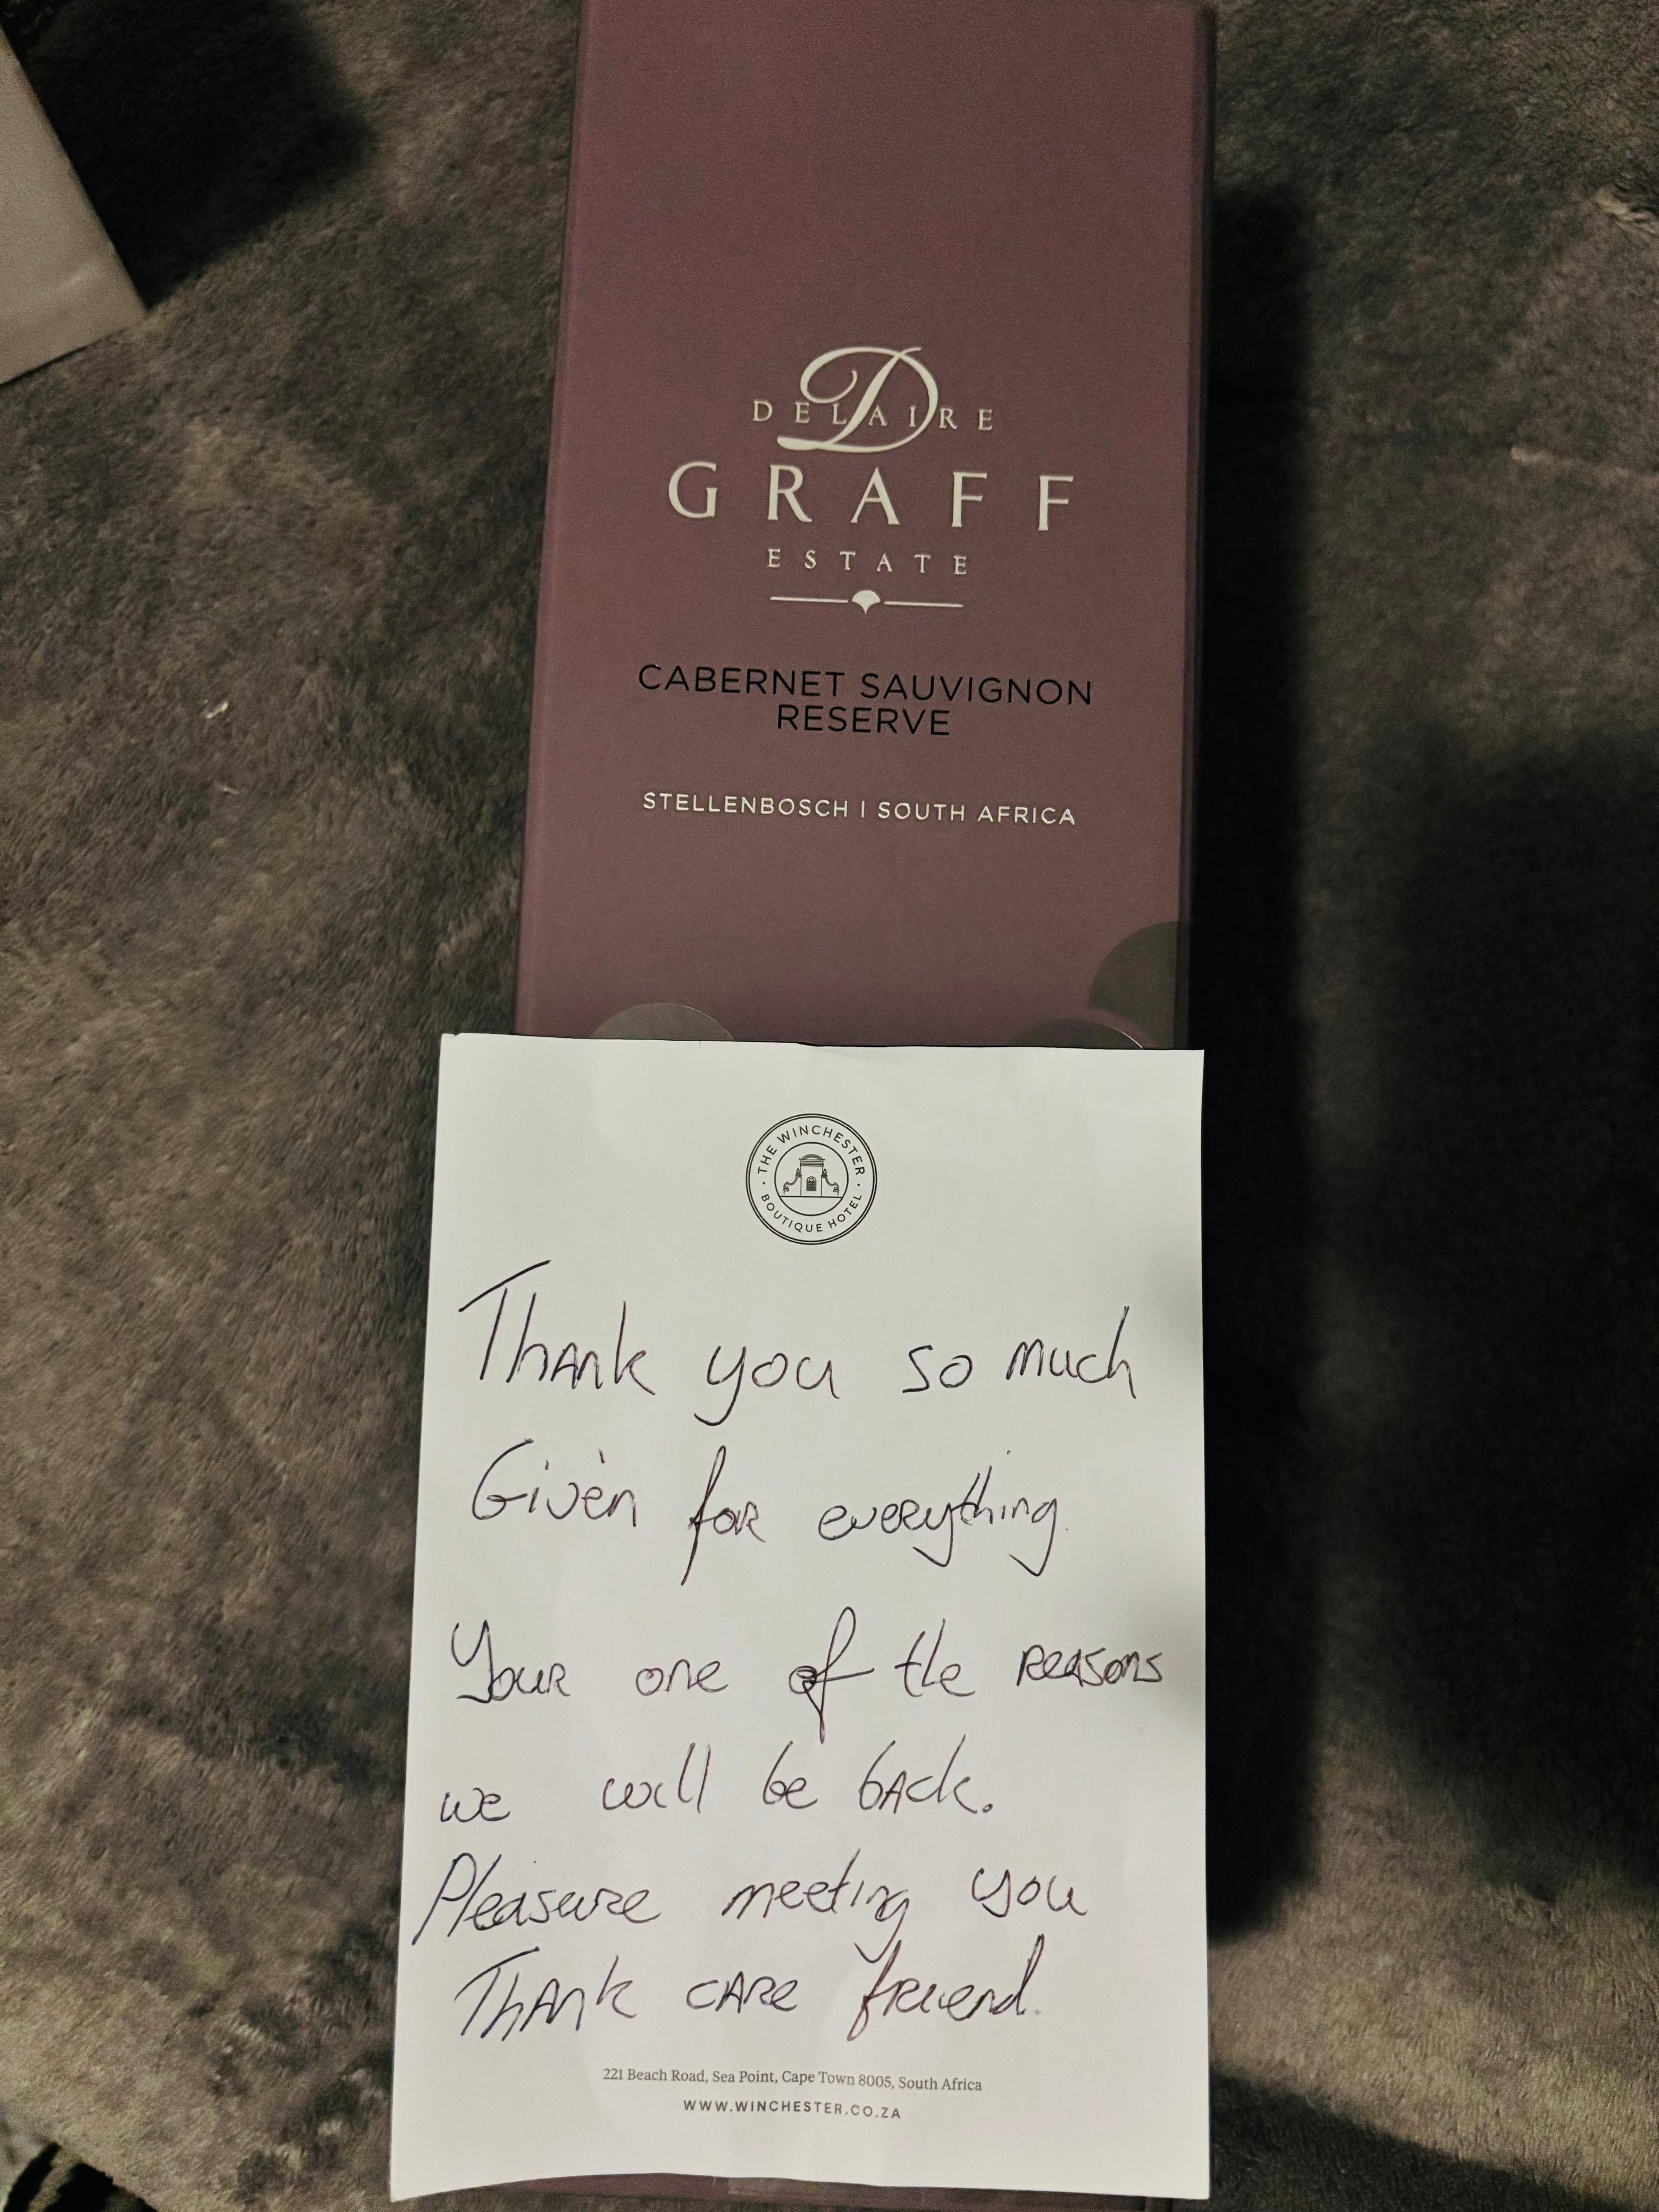 DELAIRE
GRAFF
ESTATE
CABERNET SAUVIGNON
RESERVE
STELLENBOSCH | SOUTH AFRICA
· THE WINCHESTER ·
BOUTIQUE HOTEL
Thank you so much
Given for everything.
Your one of the reasons
we will be back.
Pleasure meeting you
Thank care friend.
221 Beach Road, Sea Point, Cape Town 8005, South Africa
WWW.WINCHESTER.CO.ZA